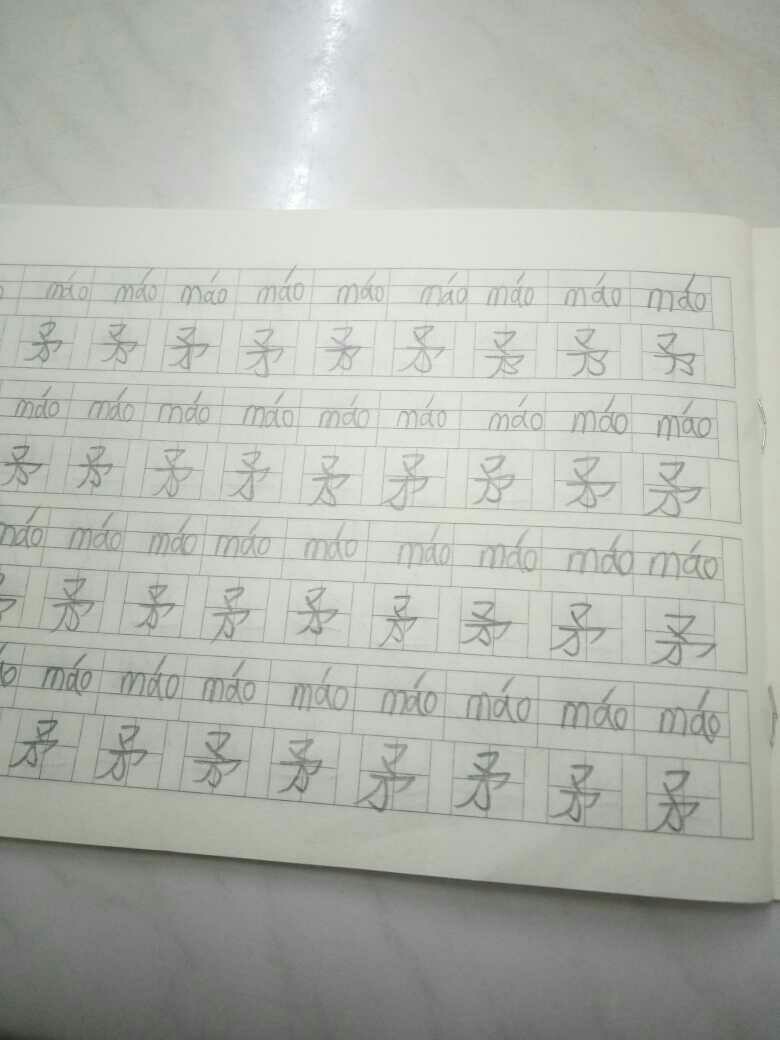 máo máo máo máo máo máo máo máo máo
矛 矛 矛 矛 矛 矛 矛 矛 矛
máo máo máo máo máo máo máo máo máo
矛 矛 矛 矛 矛 矛 矛 矛 矛
máo máo máo máo máo máo máo máo máo
矛 矛 矛 矛 矛 矛 矛 矛 矛
máo máo máo máo máo máo máo máo
矛 矛 矛 矛 矛 矛 矛 矛